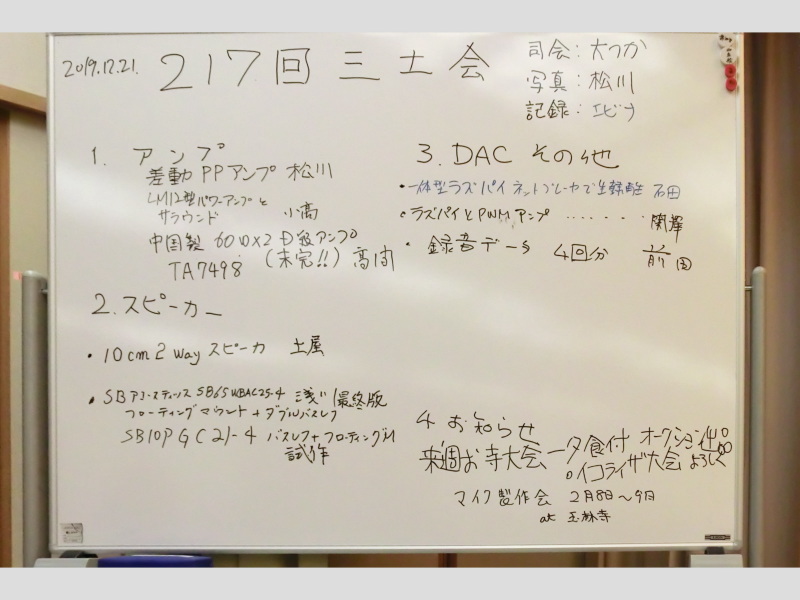 2019.12.21.
217回 三土会
司会:大つか
写真:松川
記録:エビナ
1. アンプ
差動PPアンプ 松川
LM12型パワーアンプと
サラウンド 小高
中国製 60W×2 D級アンプ
TA7498 (未完!!) 高間
2. スピーカー
・10cm 2way スピーカ 土屋
・SBアコースティックス SB65WBAC25-4 浅川 最終版
フローティングマウント+ダブルバスレフ
SB10PGC21-4 バスレフ+フローティングM
試作
3. DAC その他
・一体型ラズパイ 石田
・ラズパイとPWMアンプ ・・・・・・ 関澤
・録音データ 4回分 前田
4 お知らせ
来週お寺大会-夕食付 オークション
・イコライザ大会 よろしく
マイク製作会 2月8日~9日
at 玉林寺